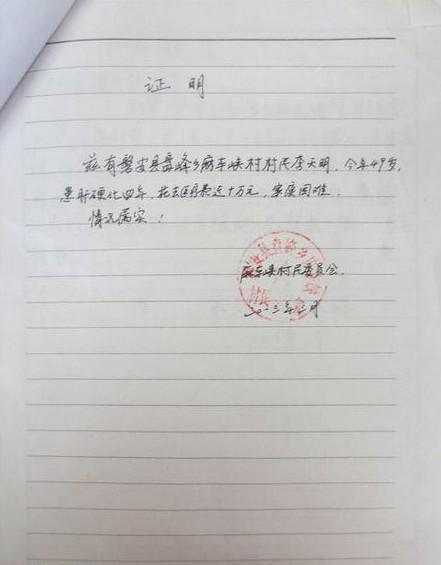 证明
兹有磐安县盘峰乡麻车坑村村民李天明，今年49岁，
患肝硬化四年，花去医药费近十万元，家庭困难。
情况属实！
麻车坑村民委员会
二〇一三年 月